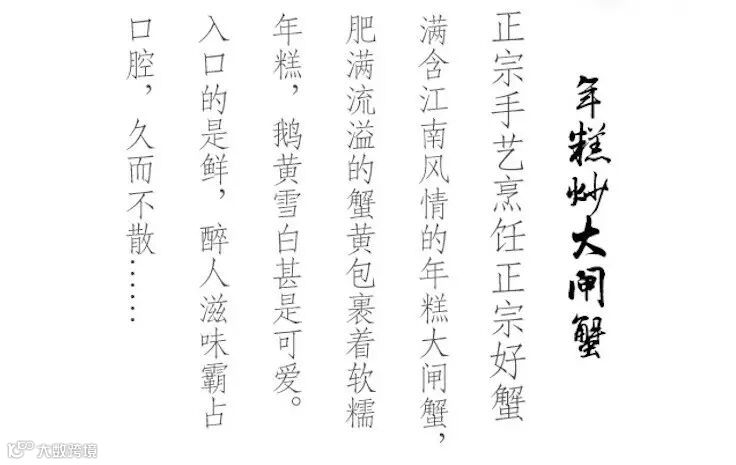 年糕炒大闸蟹
正宗手艺烹饪正宗好蟹
满含江南风情的年糕大闸蟹，
肥满流溢的蟹黄包裹着软糯
年糕，鹅黄雪白甚是可爱。
入口的是鲜，醉人滋味霸占
口腔，久而不散……
大数跨境